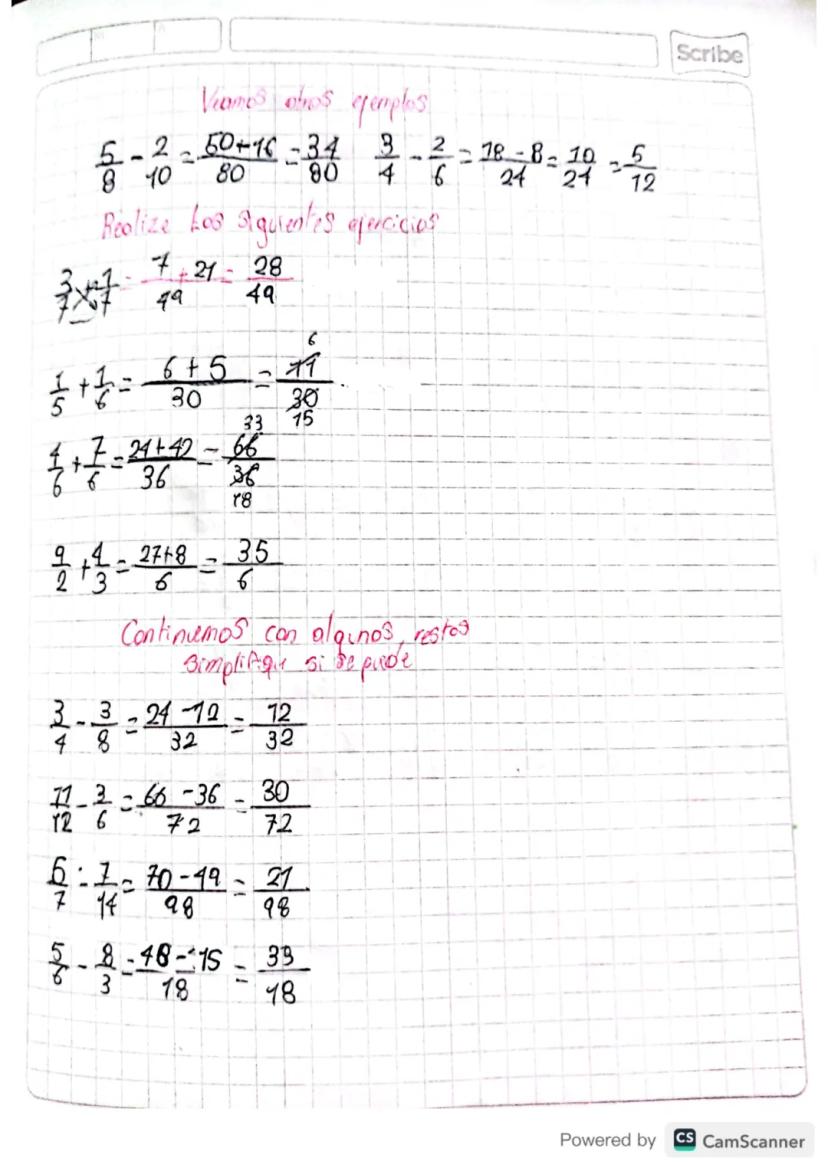 Scribe
Veamos otros ejemplos
5/8 - 2/10 = 50+16/80 = 34/80 3/4 - 2/6 = 18-8/24 = 10/24 = 5/12
Realize Los siguientes ejercicios
3/7 + 1/7 = 7+21/49 = 28/49
1/5 + 1/6 = 6+5/30 = 11/30 6/15
4/6 + 7/6 = 24+42/36 = 66/36 33/18
9/2 + 4/3 = 27+8/6 = 35/6
Continuemos con algunos restos
simplifique si se puede
3/4 - 3/8 = 24-12/32 = 12/32
11/12 - 3/6 = 66-36/72 = 30/72
7/14 = 70-49/98 = 21/98
5/6 - 8/3 = 48-15/18 = 33/18
Powered by CS CamScanner